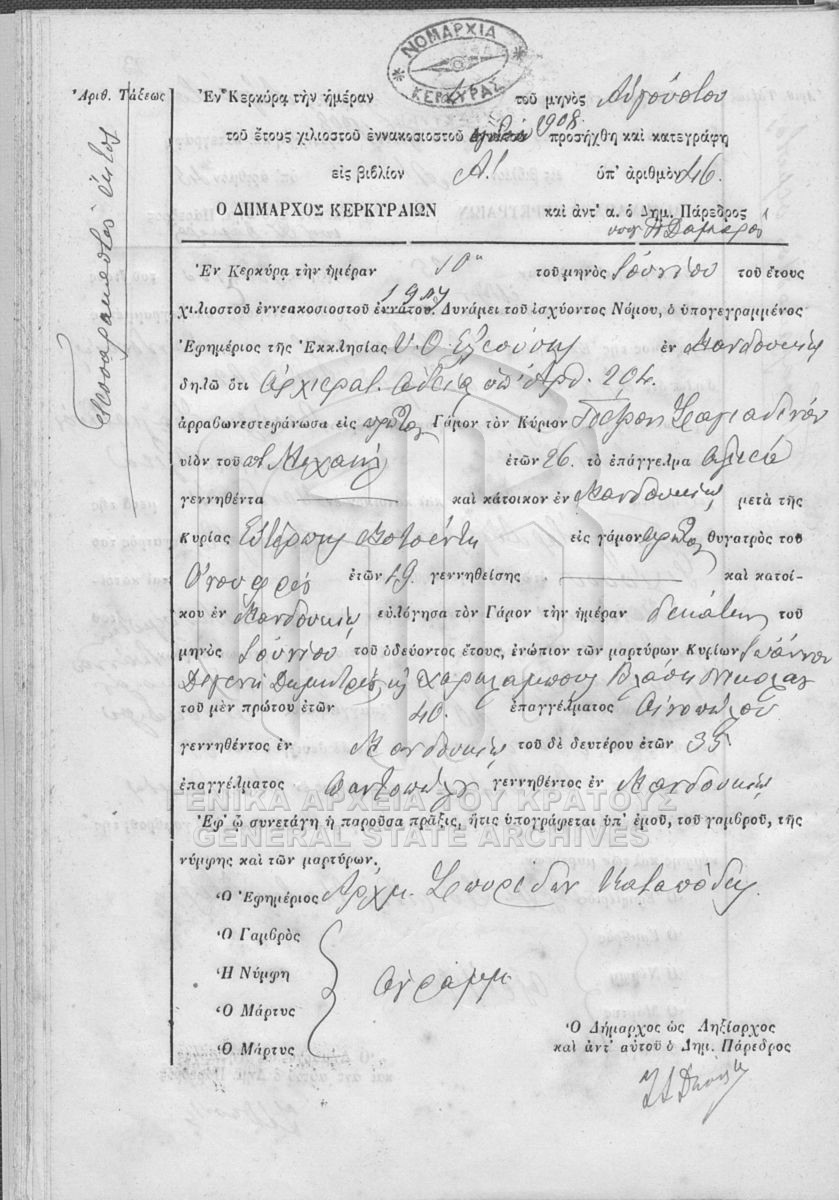 ΝΟΜΑΡΧΙΑ
ΚΕΡΚΥΡΑΣ
Ἀριθ. Τάξεως
Τεσσαρακοστὸς ἕκτος
Ἐν Κερκύρᾳ τὴν ἡμέραν τοῦ μηνὸς Αὐγούστου
τοῦ ἔτους χιλιοστοῦ ἐννακοσιοστοῦ 1908 προσήχθη καὶ κατεγράφη
εἰς βιβλίον Α! ὑπ' ἀριθμὸν 46.
Ο ΔΗΜΑΡΧΟΣ ΚΕΡΚΥΡΑΙΩΝ καὶ ἀντ' α. ὁ Δημ. Πάρεδρος
Ἐν Κερκύρᾳ τὴν ἡμέραν 10η τοῦ μηνὸς Ἰουνίου τοῦ ἔτους
χιλιοστοῦ ἐννεακοσιοστοῦ ἐννάτου. 1907 Δυνάμει τοῦ ἰσχύοντος Νόμου, ὁ ὑπογεγραμμένος
Ἐφημέριος τῆς Ἐκκλησίας Υ. Θ. Ἐλεούσης ἐν Μανδουκίῳ
δηλῶ ὅτι Ἀρχιερατ. ἀδείᾳ ὑπ' Ἀρθ. 204.
ἀρραβωνεστεφάνωσα εἰς πρῶτον Γάμον τὸν Κύριον
υἱὸν τοῦ Μιχαὴλ ἐτῶν 26. τὸ ἐπάγγελμα ἁλιέα
γεννηθέντα καὶ κάτοικον ἐν Μανδουκίῳ μετὰ τῆς
Κυρίας Εὐτέρπης εἰς γάμον πρῶτον θυγατρὸς τοῦ
Ὀνουφρίου ἐτῶν 19 γεννηθείσης καὶ κατοί-
κου ἐν Μανδουκίῳ εὐλόγησα τὸν Γάμον τὴν ἡμέραν δεκάτην τοῦ
μηνὸς Ἰουνίου τοῦ ὁδεύοντος ἔτους, ἐνώπιον τῶν μαρτύρων Κυρίων Ἰωάννου
Δημητρίου καὶ Χαραλάμπους Βλάση Νικολάου
τοῦ μὲν πρώτου ἐτῶν 40. ἐπαγγέλματος Οἰνοπώλου
γεννηθέντος ἐν Μανδουκίῳ τοῦ δὲ δευτέρου ἐτῶν 35
ἐπαγγέλματος παντοπώλου γεννηθέντος ἐν Μανδουκίῳ
ΓΕΝΙΚΑ ΑΡΧΕΙΑ ΤΟΥ ΚΡΑΤΟΥΣ
GENERAL STATE ARCHIVES
Ἐφ' ᾧ συνετάγη ἡ παροῦσα πρᾶξις, ἥτις ὑπογράφεται ὑπ' ἐμοῦ, τοῦ γαμβροῦ, τῆς
νύμφης καὶ τῶν μαρτύρων.
Ὁ Ἐφημέριος Ἀρχμ. Σπυρίδων Καταπόδης
Ὁ Γαμβρὸς
Ἡ Νύμφη
Ὁ Μάρτυς
Ὁ Μάρτυς
Ὁ Δήμαρχος ὡς Ληξίαρχος
καὶ ἀντ' αὐτοῦ ὁ Δημ. Πάρεδρος